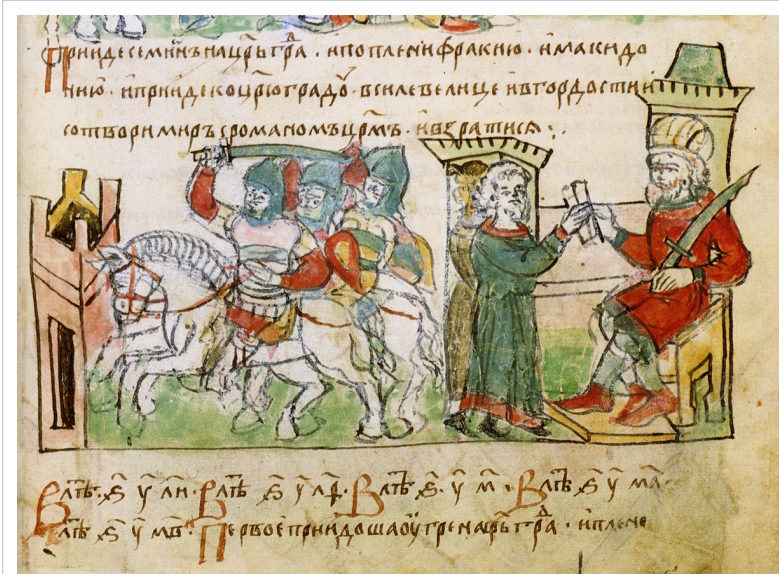 Прииде семиѡнъ на цр҃ьгра̑ . и поплени фракию . и макидо
нию . и прииде ко цр҃югradoу . в силе велице и в гордости и
сотвори миръ с романомъ цр҃мъ . и взратися :.
В лѣт҃ . ѕ҃ у҃ ли . В лѣт҃ ѕ҃ у҃ лѳ . В лѣт҃ . ѕ҃ . у҃ м . В лѣт҃ ѕ҃ у҃ ма .
В лѣт҃ ѕ҃ у҃ мв . Первое приидоша оугре на црьгра̑ . и плено